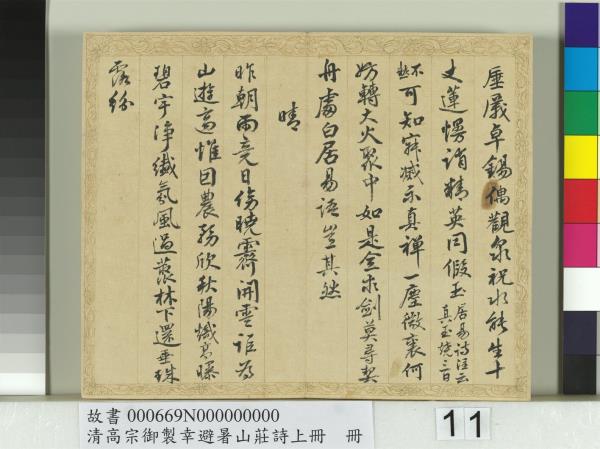 壓嚴卓錫偶觀泉祝水能生十
丈蓮愕誚精英同假玉居易詩注云真玉燒三日
不熱可知寂滅示真禪一塵微裏何
妨轉大火聚中如是念求劍莫尋契
舟處白居易語豈其然
晴
昨朝雨竟日傍曉霽開雲詎為
山遊適惟因農務欣秋陽熾若曝
碧宇淨纖氛風過蒙林下還垂珠
露紛
故書 000669N000000000
清高宗御製幸避暑山莊詩上冊 冊
11